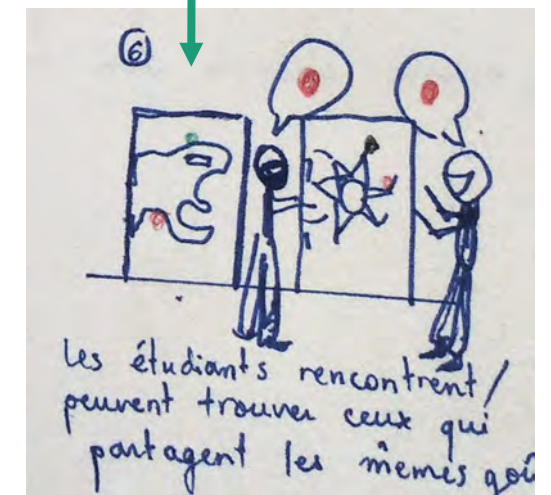 6
Les étudiants rencontrent/
peuvent trouver ceux qui
partagent les mêmes